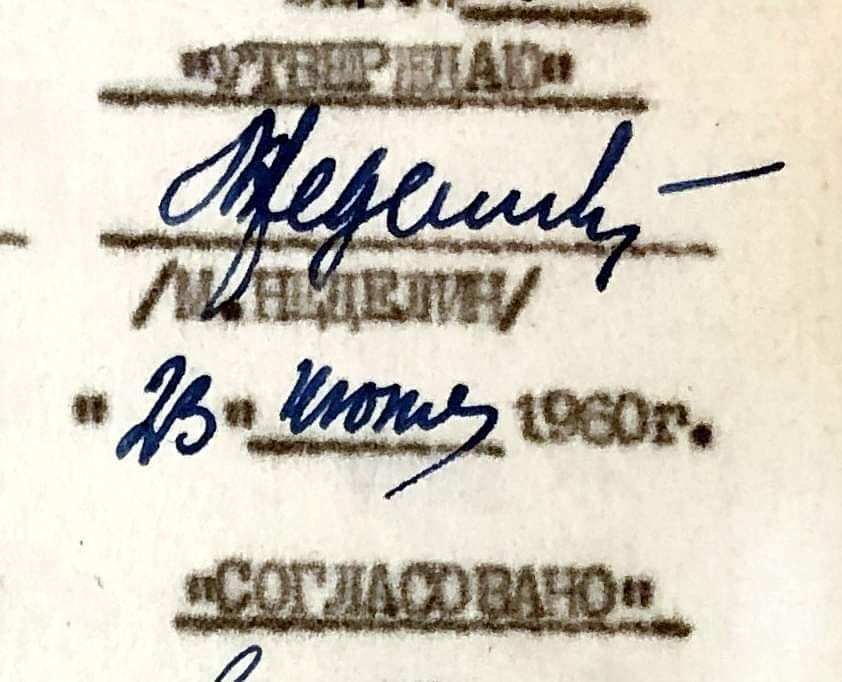 "УТВЕРЖДАЮ"
МНеделин
/М.НЕДЕЛИН/
"23" июня 1960г.
"СОГЛАСОВАНО"